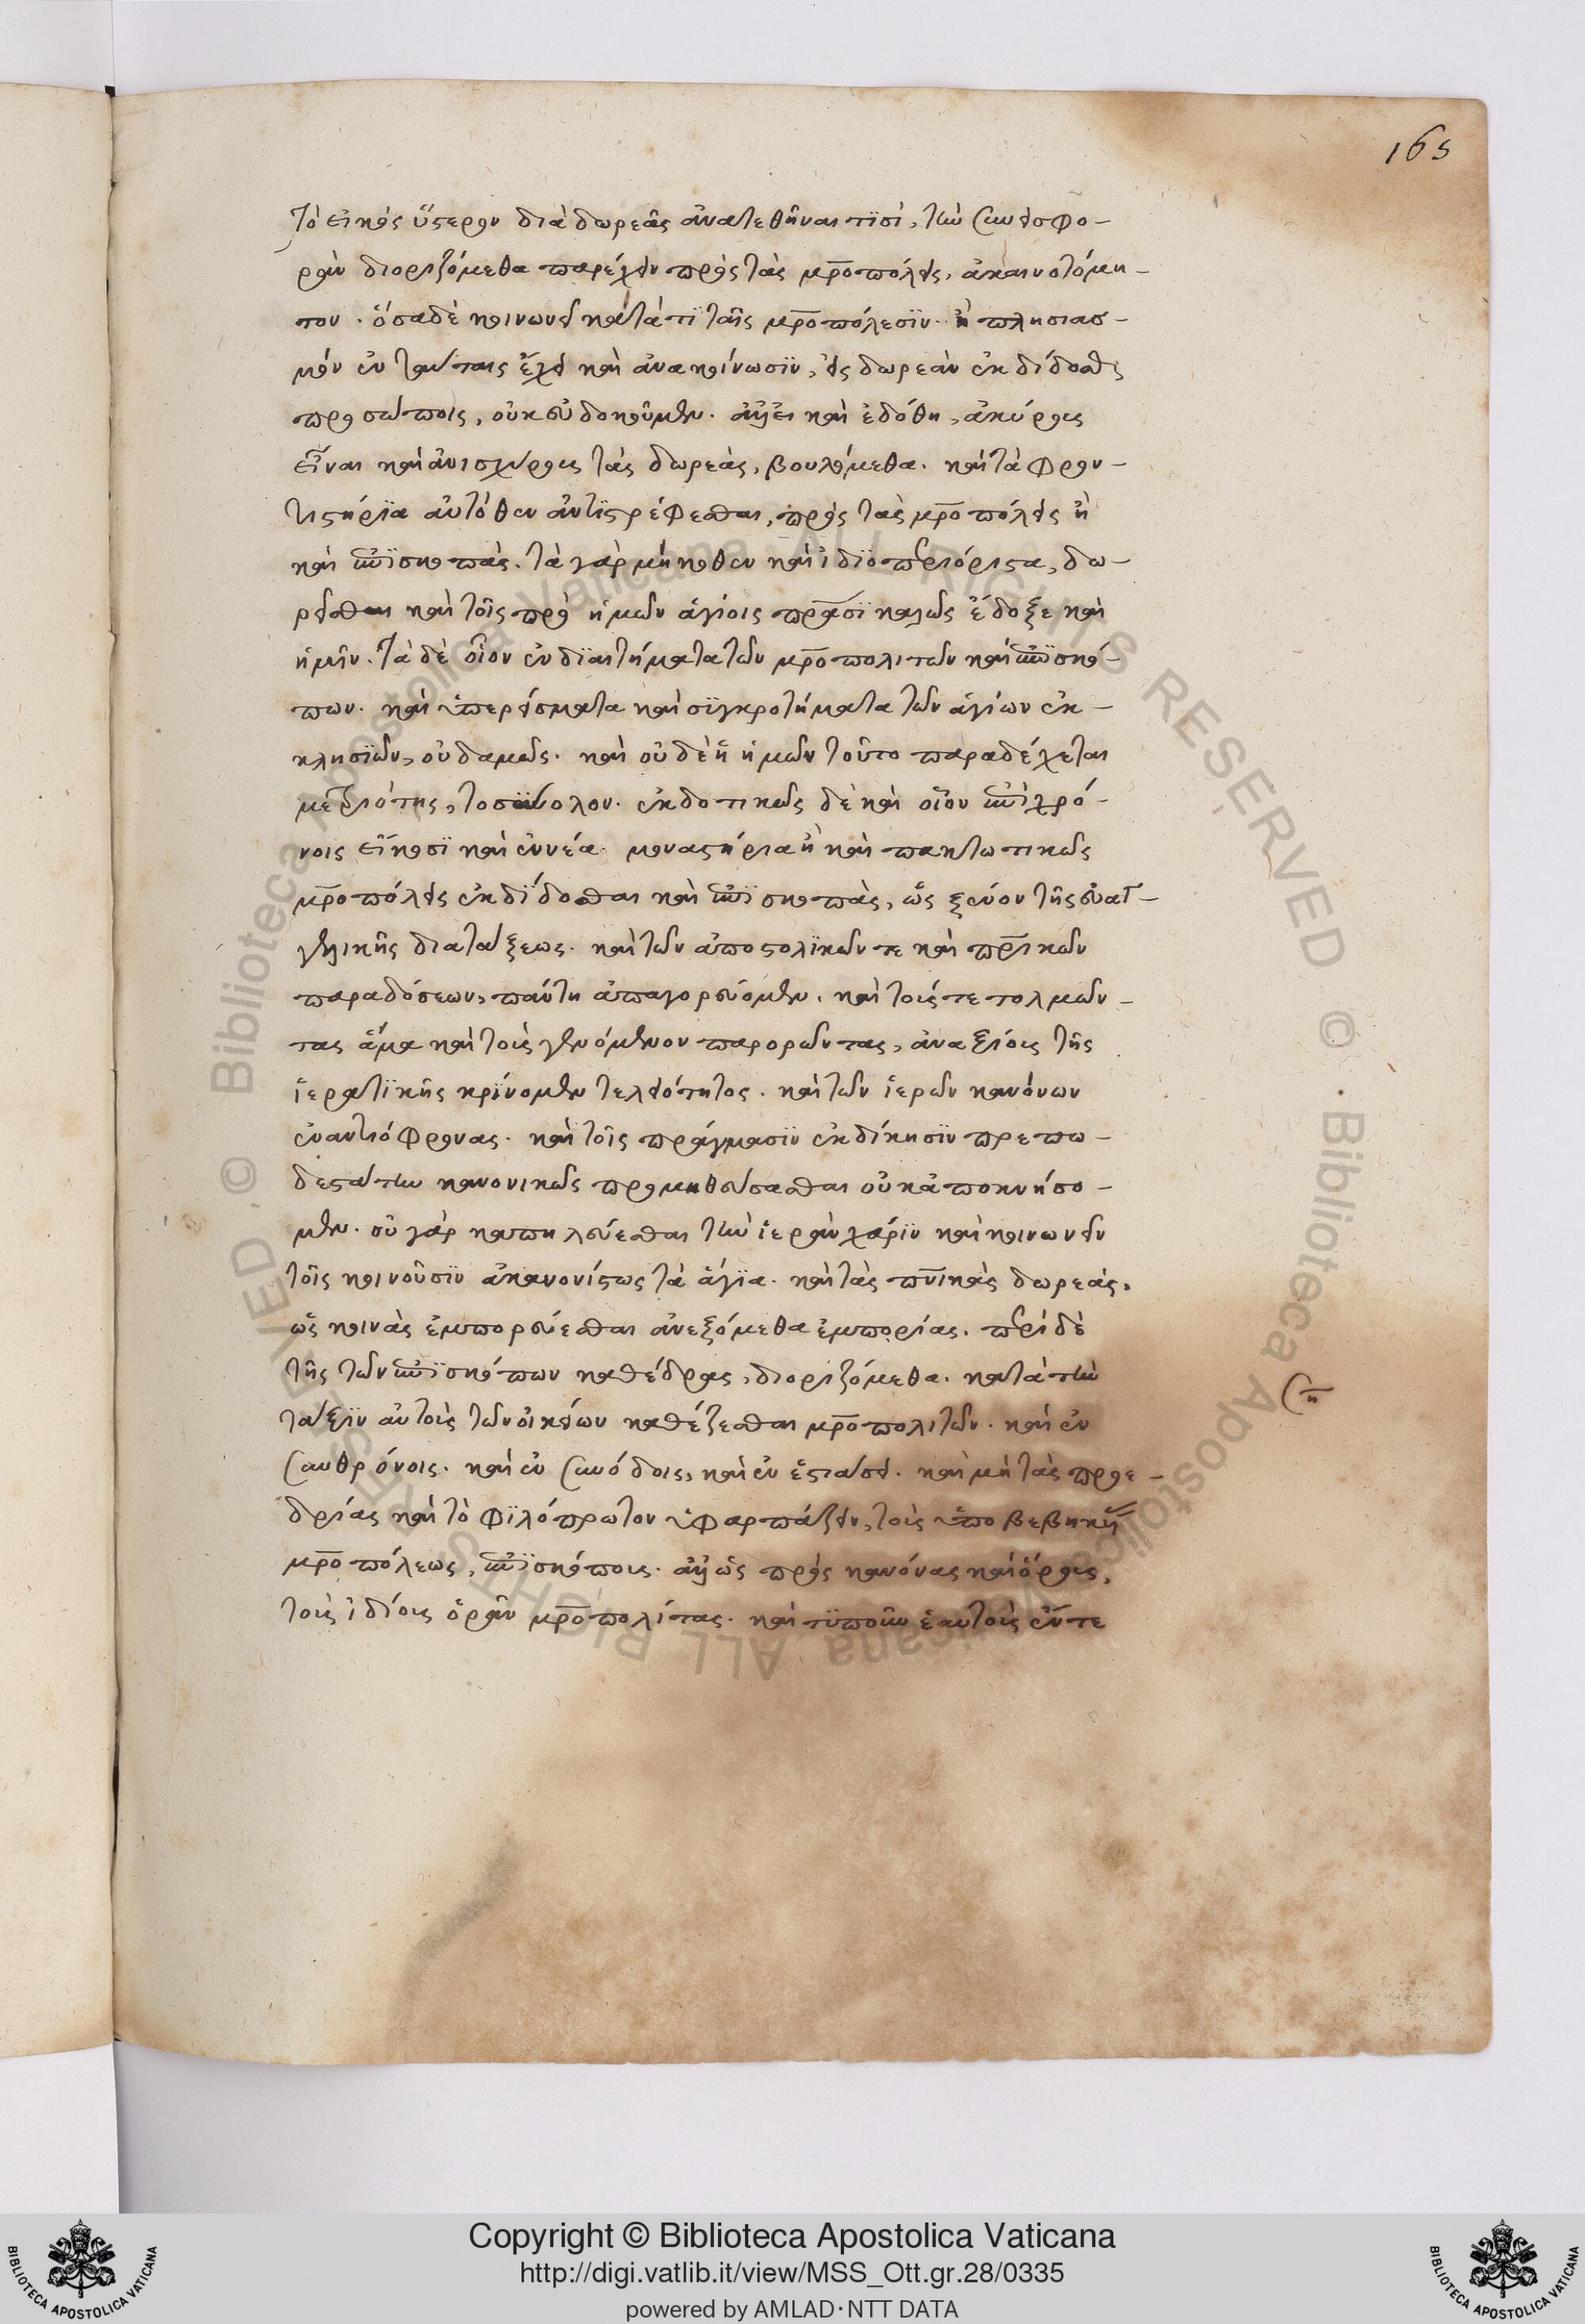 165
τὸ εἰκὸς ὕστερον διὰ δωρεᾶς ἀνατεθῆναι τϊσὶ, τὴν συνεισφο-
ρὰν διοριζόμεθα παρέχειν πρὸς τὰς μροπόλεις, ἀκαινοτόμη-
τον. ὅσα δὲ κοινωνεῖ κατά τϊ ταῖς μροπόλεσϊν. ἢ πλησιασ-
μὸν ἐν ταύταις ἔχει καὶ ἀνακοίνωσϊν, εἰς δωρεὰν ἐκδίδοσθαι
προσώποις, οὐκ εὐδοκοῦμεν. ἀλλ' εἰ καὶ ἐδόθη, ἀκύρους
εἶναι καὶ ἀνισχύρους τὰς δωρεὰς, βουλόμεθα. καὶ τὰ φρον-
τιστήρϊα αὐτόθεν ἀντϊστρέφεσθαι, πρὸς τὰς μροπόλεις ἢ
καὶ ἐπϊσκοπάς. τὰ γὰρ μήκοθεν καὶ ἰδϊοπεριόριστα, δω-
ρεῖσθαι καὶ τοῖς πρὸ ἡμῶν ἁγίοις πράσϊ καλῶς ἔδοξε καὶ
ἡμῖν. τὰ δὲ οἷον ἐνδϊαιτήματα τῶν μροπολιτῶν καὶ ἐπϊσκό-
πων. καὶ ὑπερείσματα καὶ σϊγκροτήματα τῶν ἁγίων ἐκ-
κλησϊῶν, οὐδαμῶς. καὶ οὐδὲ ἡ ἡμῶν τοῦτο παραδέχεται
μετριότης, τοσύνολον. ἐκδοτικῶς δὲ καὶ οἷον ἐπὶ χρό-
νοις εἴκοσϊ καὶ ἐννέα. μοναστήρια ἢ καὶ πακτωτικῶς
μροπόλεις ἐκδίδοσθαι καὶ ἐπϊσκοπὰς, ὡς ξένον τῆς εὐαγ-
γελικῆς διατάξεως. καὶ τῶν ἀποστολϊκῶν τε καὶ πρικῶν
παραδόσεων, πάντη ἀπαγορεύομεν. καὶ τούς τε τολμῶν-
τας ἅμα καὶ τοὺς γενόμενον παρορῶντας, ἀναξίους τῆς
ἱερατϊκῆς κρίνομεν τελειότητος. καὶ τῶν ἱερῶν κανόνων
ἐναντιόφρονας. καὶ τοῖς πράγμασϊν ἐκδίκησϊν πρεπω-
δεστάτην κανονικῶς προμηθεύσασθαι οὐκ ἀποκνήσο-
μεν. οὐ γὰρ καπηλεύεσθαι τὴν ἱερὰν χάρϊν καὶ κοινωνεῖν
τοῖς κοινοῦσϊν ἀκανονίστως τὰ ἅγϊα. καὶ τὰς πνικὰς δωρεὰς,
ὡς κοινὰς ἐμπορεύεσθαι ἀνεξόμεθα ἐμπορίας. περὶ δὲ
τῆς τῶν ἐπϊσκόπων καθέδρας, διοριζόμεθα. κατὰ τὴν
τάξϊν αὐτοὺς τῶν οἰκείων καθέζεσθαι μροπολιτῶν. καὶ ἐν
συνθρόνοις. καὶ ἐν συνόδοις, καὶ ἐν ἑστιάσει. καὶ μὴ τὰς προε-
δρίας καὶ τὸ φϊλόπρωτον ὑφαρπάζειν, τοὺς ὑποβεβηκυίας
μροπόλεως, ἐπϊσκόπους. ἀλλ' ὡς πρὸς κανόνας καὶ ὅρους,
τοὺς ἰδίους ὁρᾶν μροπολίτας. καὶ τϋποῦν ἑαυτοὺς ἔν τε
Copyright © Biblioteca Apostolica Vaticana
http://digi.vatlib.it/view/MSS_Ott.gr.28/0335
powered by AMLAD·NTT DATA